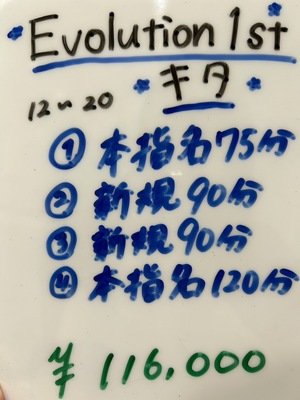 Evolution 1st
キタ
12〜20
① 本指名75分
② 新規90分
③ 新規90分
④ 本指名120分
¥116,000